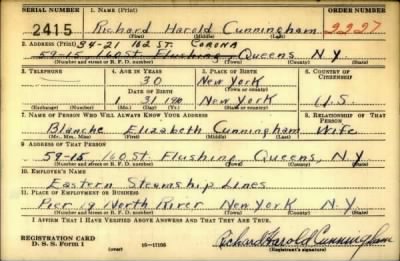 SERIAL NUMBER 1. NAME (Print) ORDER NUMBER
2415 Richard Harold Cunningham 2227
(First) (Middle) (Last)
2. ADDRESS (Print) 34-21 162 ST. CORONA
59-15 160 ST Flushing Queens N.Y.
(Number and street or R. F. D. number) (Town) (County) (State)
3. TELEPHONE 4. AGE IN YEARS 5. PLACE OF BIRTH 6. COUNTRY OF CITIZENSHIP
30 New York
(Town or county)
DATE OF BIRTH
1 31 New York U.S.
(Exchange) (Number) (Mo.) (Day) (Yr.) (State or country)
7. NAME OF PERSON WHO WILL ALWAYS KNOW YOUR ADDRESS 8. RELATIONSHIP OF THAT PERSON
Blanche Elizabeth Cunningham Wife
(Mr., Mrs., Miss) (First) (Middle) (Last)
9. ADDRESS OF THAT PERSON
59-15 160 St. Flushing Queens, N.Y
(Number and street or R. F. D. number) (Town) (County) (State)
10. EMPLOYER'S NAME
Eastern Steamship Lines
11. PLACE OF EMPLOYMENT OR BUSINESS
Pier 19 North River New York N.Y.
(Number and street or R. F. D. number) (Town) (County) (State)
I AFFIRM THAT I HAVE VERIFIED ABOVE ANSWERS AND THAT THEY ARE TRUE.
REGISTRATION CARD
D. S. S. Form 1 (over) 16-17105 Richard Harold Cunningham
(Registrant's signature)